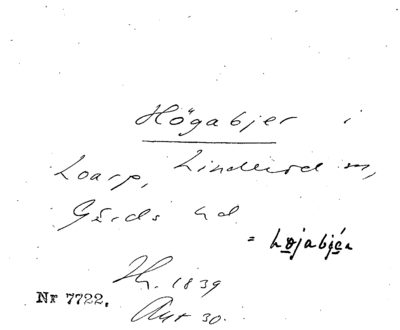 Högabjer i
Loarp, Linderöd sn,
Gärds hd
= højabjér
H. 1839
Nr 7722.
30.